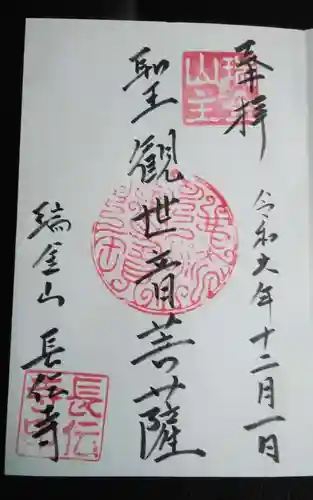 奉拝
令和六年十二月一日
聖観世音菩薩
瑞金山 長伝寺
長伝寺印